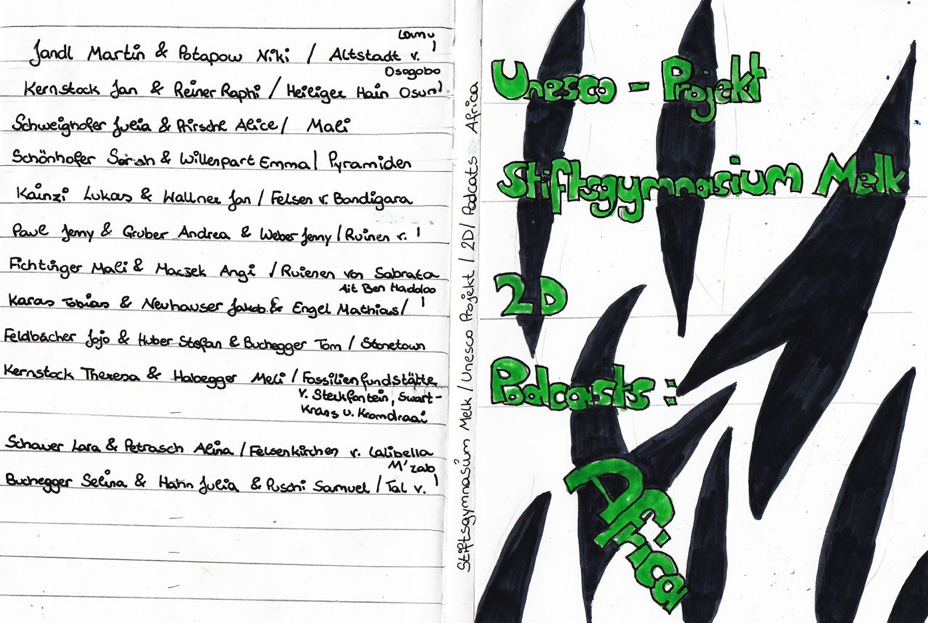 Jandl Martin & Potapow Niki / Altstadt v. Lamu
Kernstock Jan & Reiner Raphi / Heiliger Hain Osun Osogobo
Schweighofer Julia & Hirsche Alice / Mali
Schönhofer Sarah & Willenpart Emma / Pyramiden
Kainzl Lukas & Wallner Jan / Felsen v. Bandigara
Paul Jenny & Gruber Andrea & Weber Jenny / Ruinen v.
Fichtinger Mali & Macsek Angi / Ruienen von Sabrata
Karas Tobias & Neuhauser Jakob & Engel Mathias / Ait Ben Haddoo
Feldbacher Jojo & Huber Stefan & Buchegger Tom / Stonetown
Kernstock Theresa & Habegger Meli / Fossilienfundstätte
v. Sterkfontein, Swart-
Krans u. Kromdraai
Schauer Lara & Petrasch Alina / Felsenkirchen v. Lalibella
Buchegger Selina & Hahn Julia & Puschi Samuel / Tal v. M'zab
Stiftsgymnasium Melk / Unesco Projekt / 2D / Podcats Africa
Unesco - Projekt
Stiftsgymnasium Melk
2D
Podcasts :
Africa